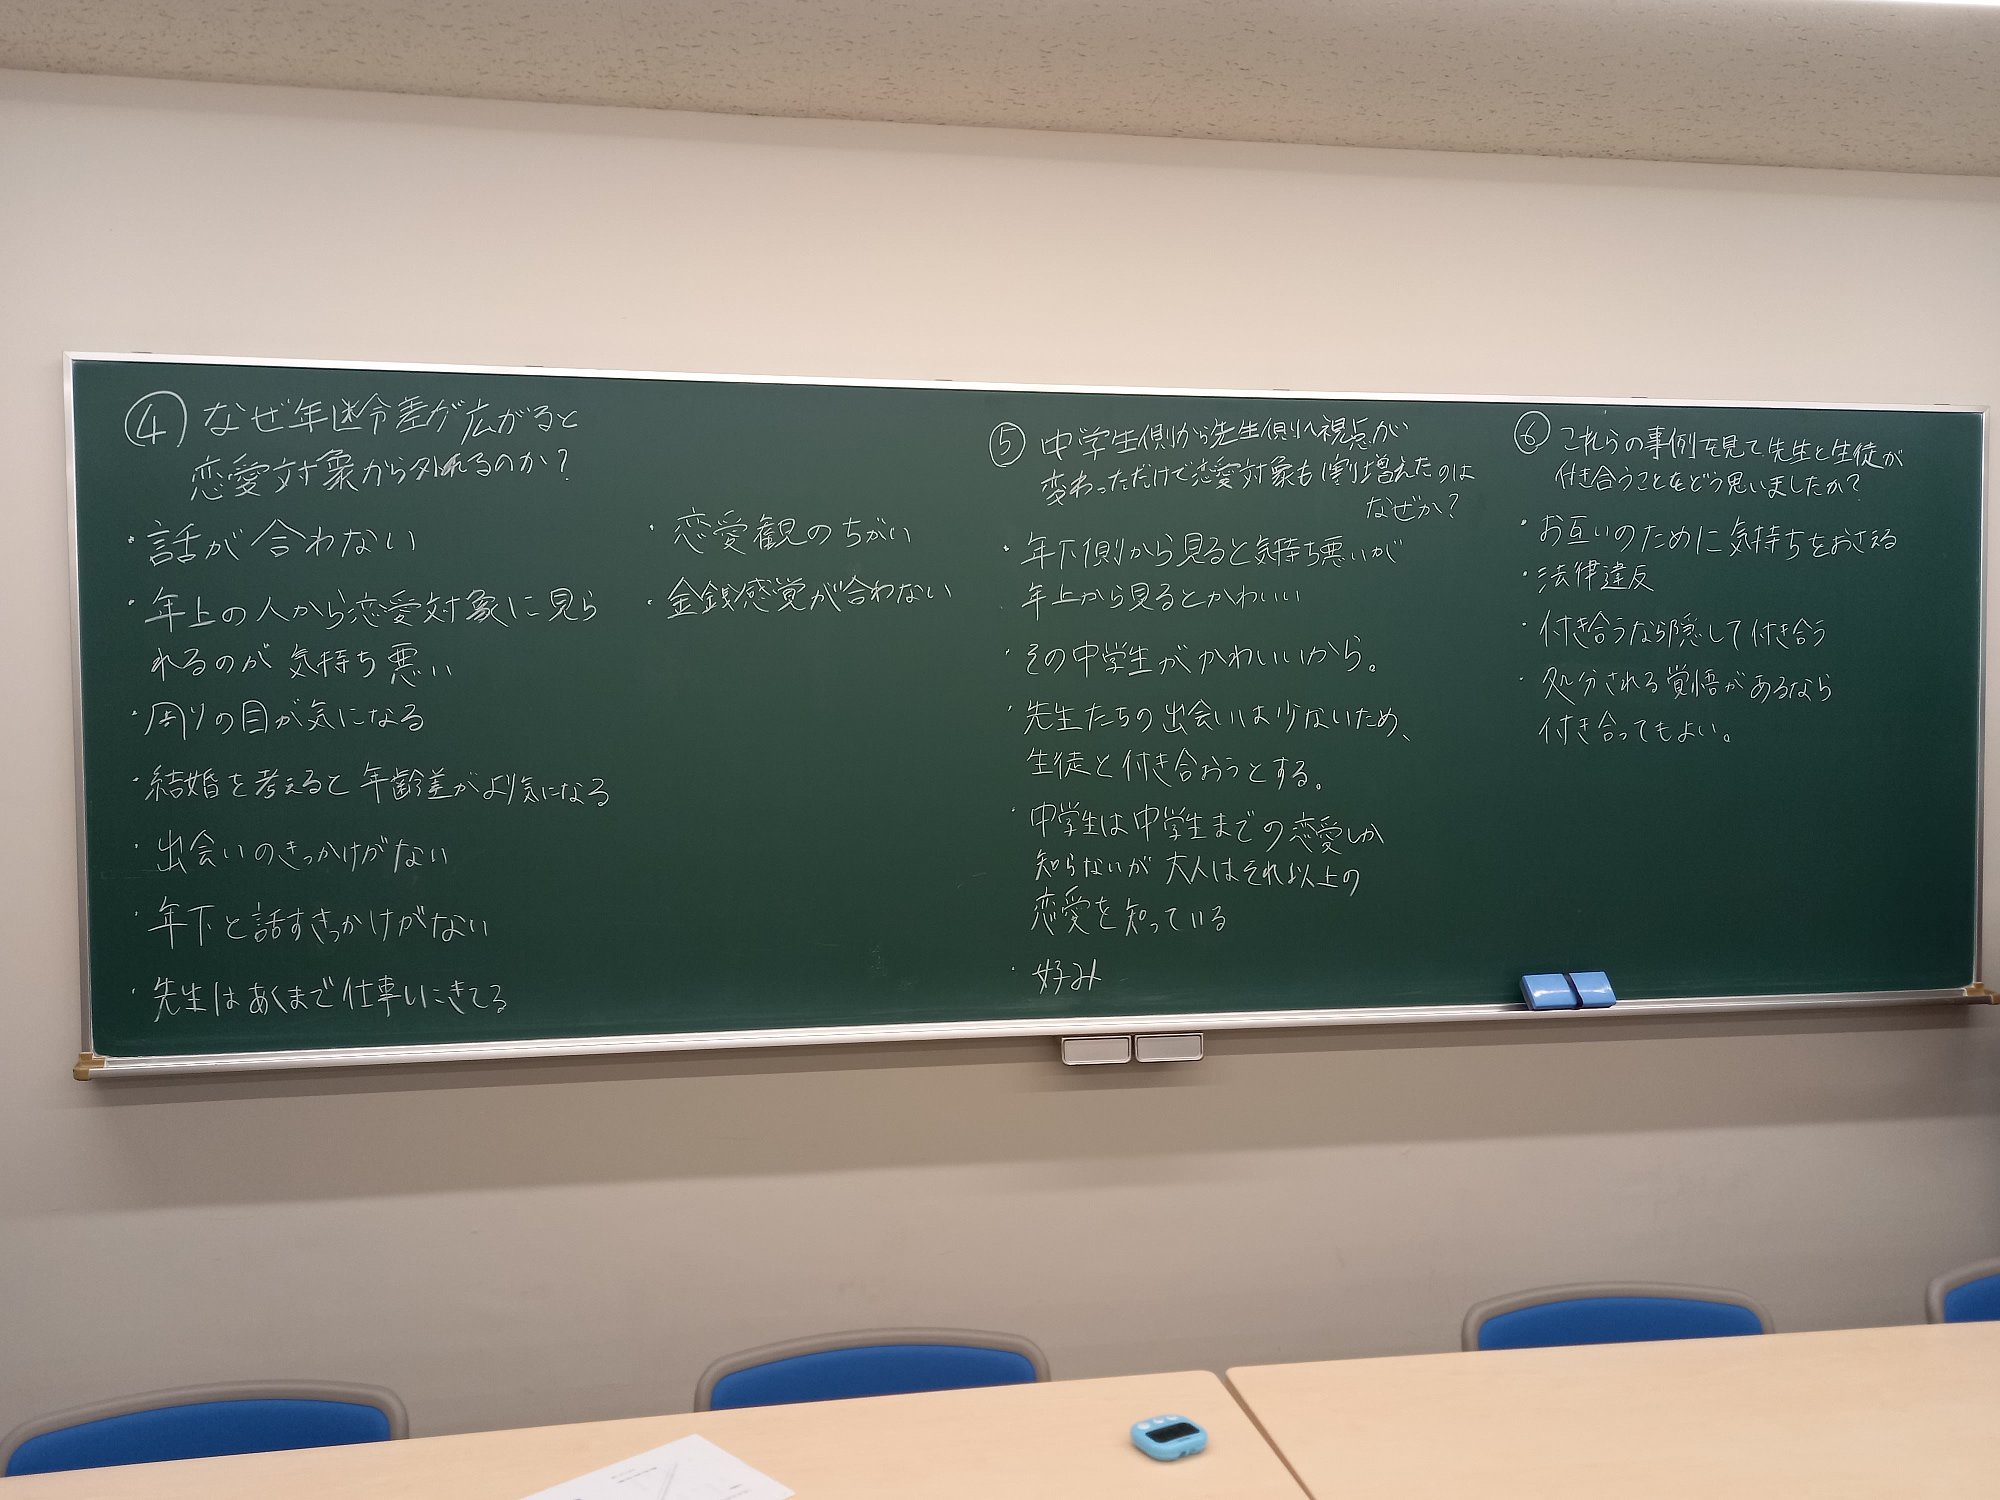 ④ なぜ年齢差が広がると
恋愛対象から外れるのか?
・話が合わない
・年上の人から恋愛対象に見ら
れるのが気持ち悪い
・周りの目が気になる
・結婚を考えると年齢差がより気になる
・出会いのきっかけがない
・年下と話すきっかけがない
・先生はあくまで仕事しにきてる
・恋愛観のちがい
・金銭感覚が合わない
⑤ 中学生側から先生側へ視点が
変わっただけで恋愛対象も1割増えたのは
なぜか?
・年下側から見ると気持ち悪いが
年上から見るとかわいい
・その中学生がかわいいから。
・先生たちの出会いは少ないため、
生徒と付き合おうとする。
・中学生は中学生までの恋愛しか
知らないが大人はそれ以上の
恋愛を知っている
・好み
⑥ これらの事例を見て先生と生徒が
付き合うことをどう思いましたか?
・お互いのために気持ちをおさえる
・法律違反
・付き合うなら隠して付き合う
・処分される覚悟があるなら
付き合ってもよい。